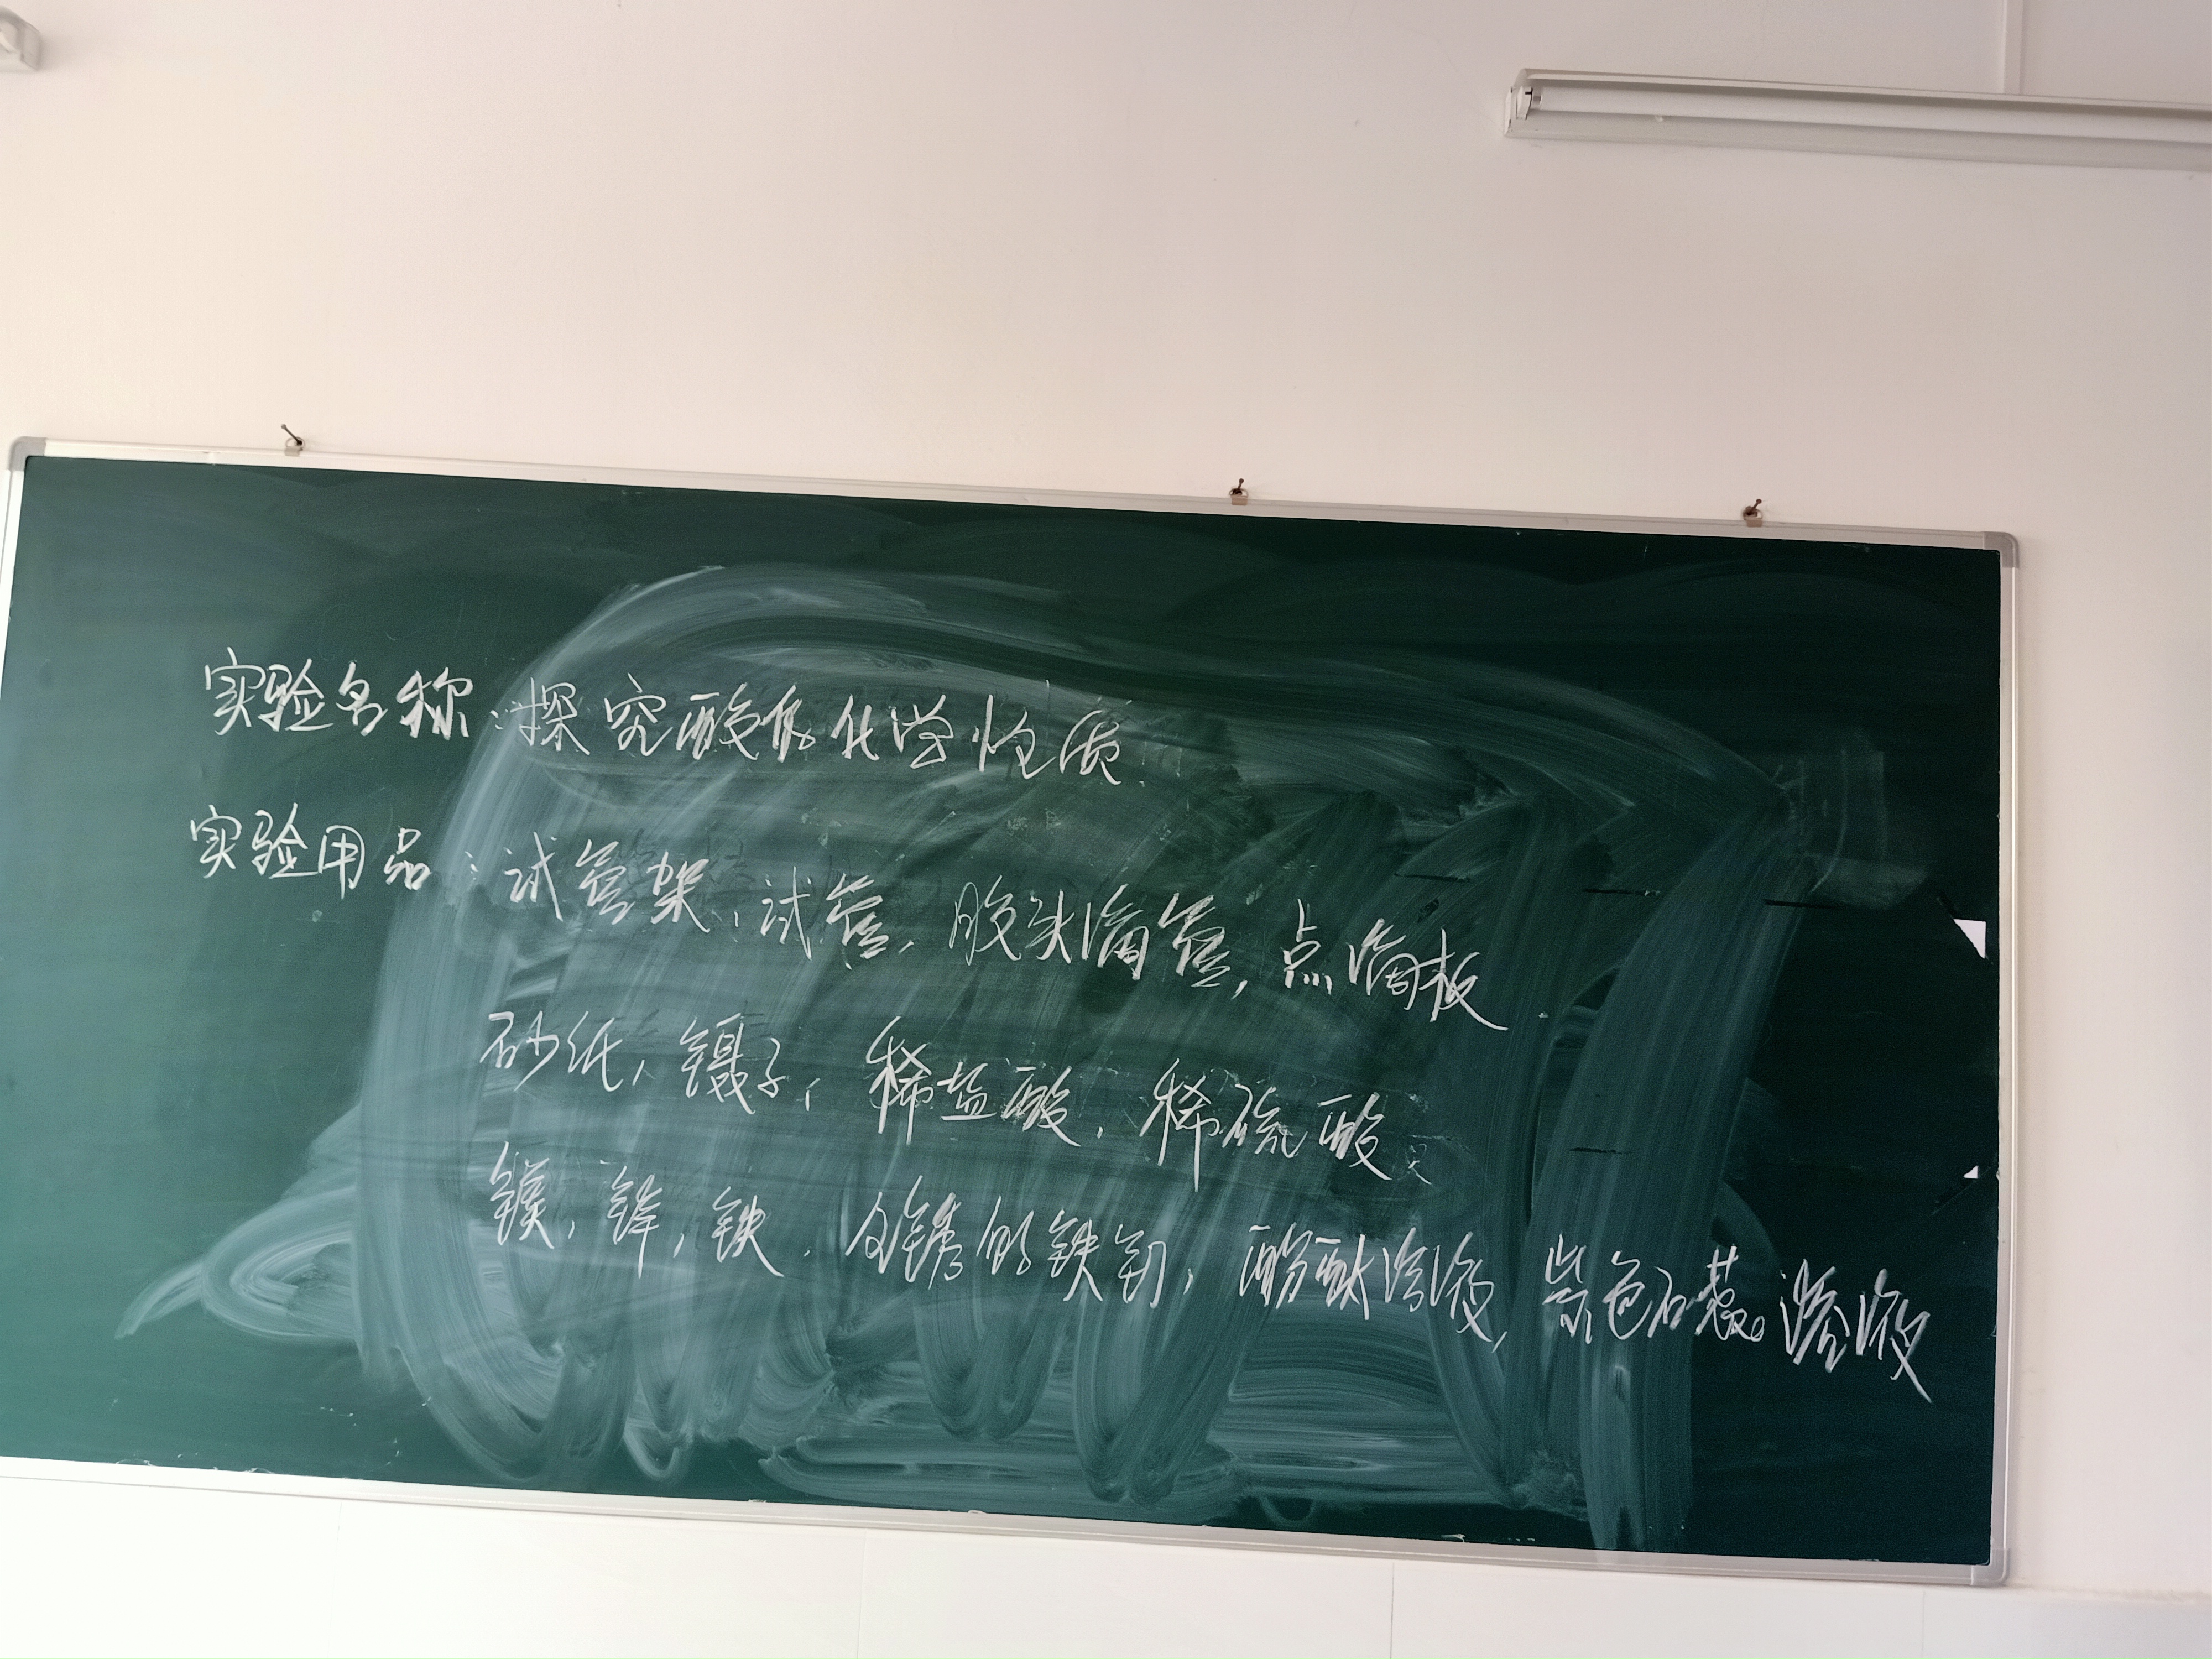 实验名称:探究酸的化学性质
实验用品:试管架、试管,胶头滴管,点滴板
砂纸,镊子,稀盐酸,稀硫酸
镁,锌,铁,生锈的铁钉,酚酞溶液,紫色石蕊溶液